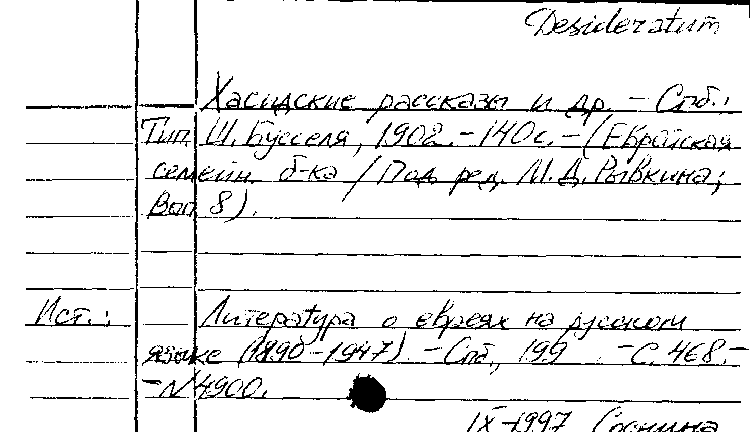 Desideratum
Хасидские рассказы и др. – Спб.:
Тип. Ш. Бусселя, 1902. – 140с. – (Еврейская
семейн. б-ка / Под ред. М.Д. Рывкина;
Вып. 8).
Ист.: Литература о евреях на русском
языке (1890-1947). – Спб., 199 . – С. 468. –
– N 4900.
IX-1997 Соснина